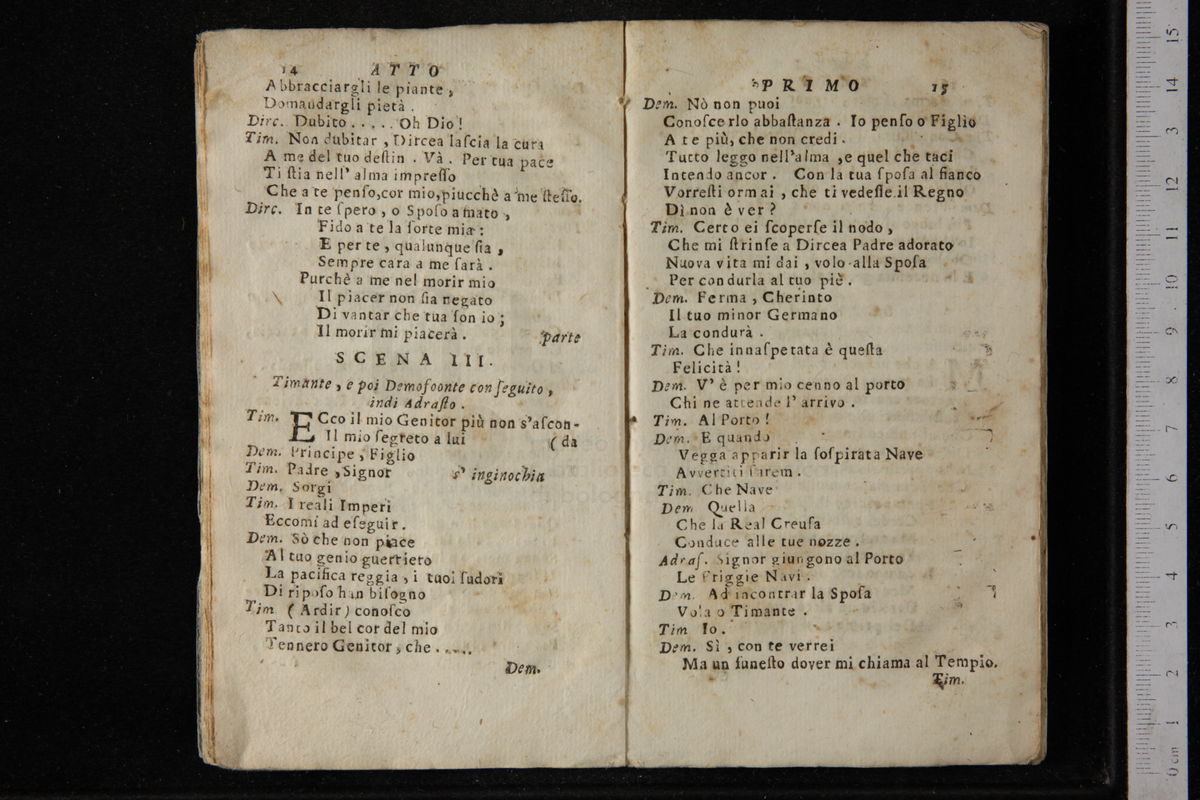 14 ATTO
Abbracciargli le piante,
Domandargli pietà.
Dirc. Dubito..... Oh Dio!
Tim. Non dubitar, Dircea laſcia la cura
A me del tuo deſtin. Và. Per tua pace
Ti ſtia nell' alma impreſſo
Che a te penſo, cor mio, piucchè a me ſteſſo.
Dirc. In te ſpero, o Spoſo amato,
Fido a te la ſorte mia:
E per te, qualunque ſia,
Sempre cara a me ſarà.
Purchè a me nel morir mio
Il piacer non ſia negato
Di vantar che tua ſon io;
Il morir mi piacerà. parte
SCENA III.
Timante, e poi Demofoonte con ſeguito,
indi Adraſto.
Tim. ECco il mio Genitor più non s'aſcon-
Il mio ſegreto a lui (da
Dem. Principe, Figlio
Tim. Padre, Signor s' inginochia
Dem. Sorgi
Tim. I reali Imperi
Eccomi ad eſeguir.
Dem. Sò che non piace
Al tuo genio guerriero
La pacifica reggia, i tuoi ſudori
Di ripoſo han biſogno
Tim (Ardir) conoſco
Tanto il bel cor del mio
Tennero Genitor, che.....
Dem.
PRIMO 15
Dem. Nò non puoi
Conoſcerlo abbaſtanza. Io penſo o Figlio
A te più, che non credi.
Tutto leggo nell'alma, e quel che taci
Intendo ancor. Con la tua ſpoſa al fianco
Vorreſti ormai, che ti vedeſſe il Regno
Dì non è ver?
Tim. Certo ei ſcoperſe il nodo,
Che mi ſtrinſe a Dircea Padre adorato
Nuova vita mi dai, volo alla Spoſa
Per condurla al tuo piè.
Dem. Ferma, Cherinto
Il tuo minor Germano
La condurà.
Tim. Che innaſpetata è queſta
Felicità!
Dem. V' è per mio cenno al porto
Chi ne attende l' arrivo.
Tim. Al Porto!
Dem. E quando
Vegga apparir la ſoſpirata Nave
Avvertiti ſarem.
Tim. Che Nave
Dem Quella
Che la Real Creuſa
Conduce alle tue nozze.
Adraſ. Signor giungono al Porto
Le Friggie Navi.
Dem. Ad incontrar la Spoſa
Vola o Timante.
Tim Io.
Dem. Sì, con te verrei
Ma un funeſto dover mi chiama al Tempio.
Tim.
15
14
13
12
11
10
9
8
7
6
5
4
3
2
1
0 cm